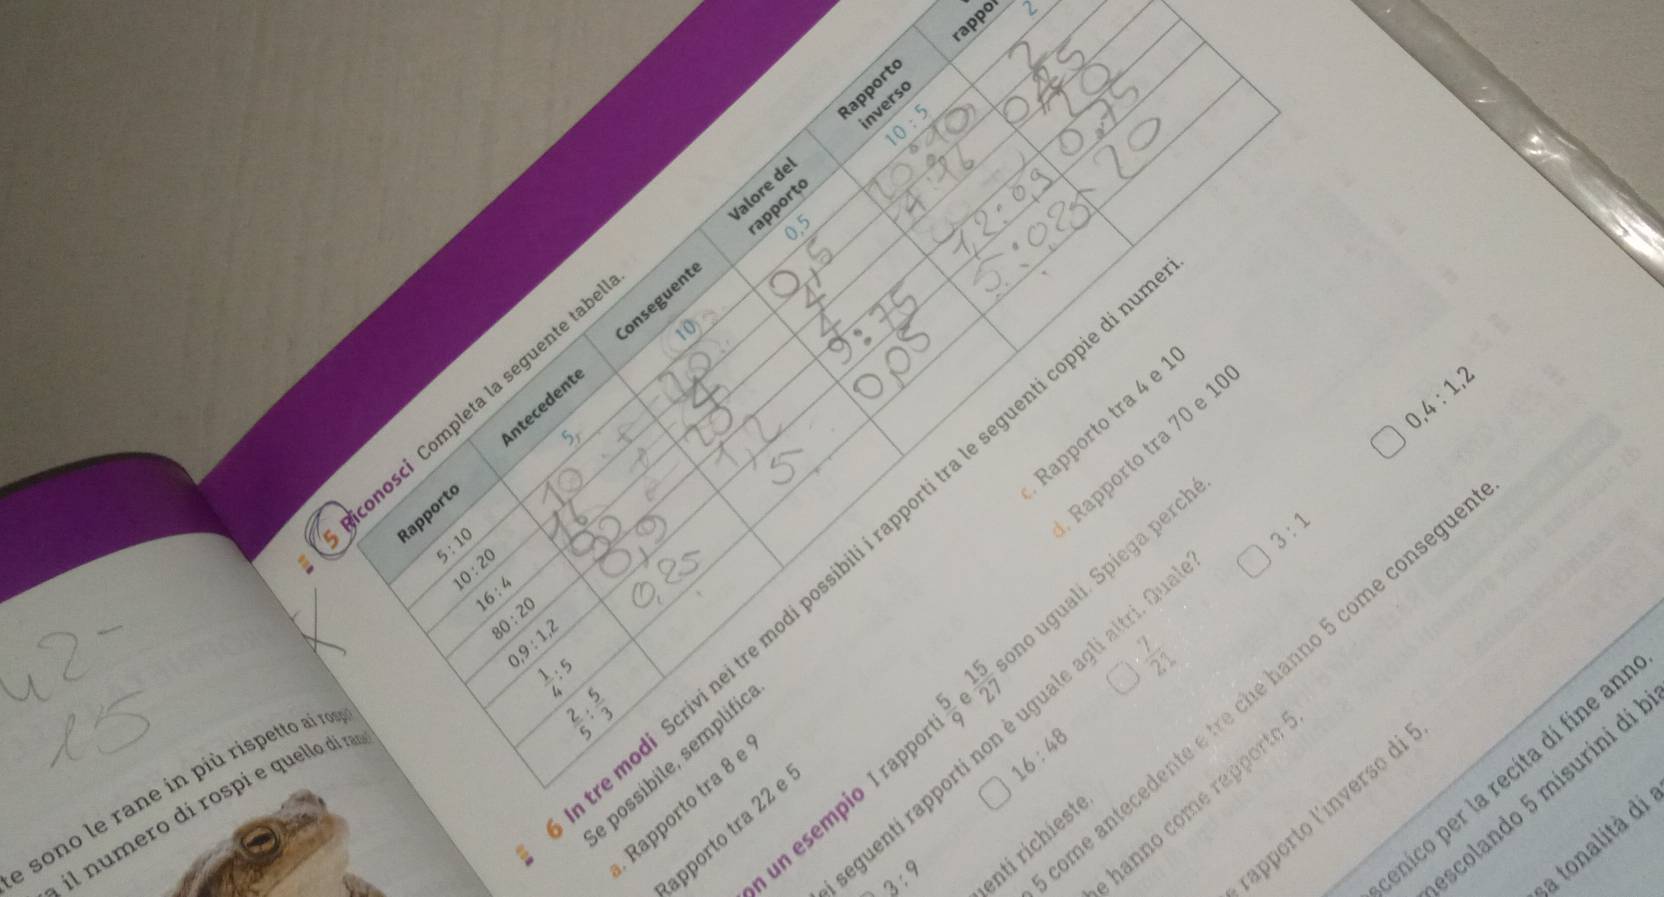 5 Riconosci Completa la seguente tabella.
Rapporto Antecedente Conseguente Valore del rapporto Rapporto inverso
5 : 10 5 10 0,5 10 : 5 2
10 : 20 10 20 0,5 20 : 10 2
16 : 4 16 4 4 4 : 16
80 : 20 20 4
0,9 : 1,2 0,9 1,2 9 : 75 1,2 : 0,9 0,75
1/4 : 5 0,25 5 0,05 5 : 0,25 20
2/5 : 5/3
6 In tre modi Scrivi nei tre modi possibili i rapporti tra le seguenti coppie di numeri.
Se possibile, semplifica.
a. Rapporto tra 8 e 9
c. Rapporto tra 4 e 10
Rapporto tra 22 e 5
d. Rapporto tra 70 e 100
un esempio I rapporti 5/9 e 15/27 sono uguali. Spiega perché.
seguenti rapporti non è uguale agli altri. Quale?
3 : 9
16 : 48
7/21
3 : 1
0,4 : 1,2
richieste.
5 come antecedente e tre che hanno 5 come conseguente.
hanno come rapporto 5.
rapporto l'inverso di 5.
per la recita di fine anno.
5 misurini di
tonalità di
42 -
15
sono le rane in più rispetto ai
il numero di rospi e quello di